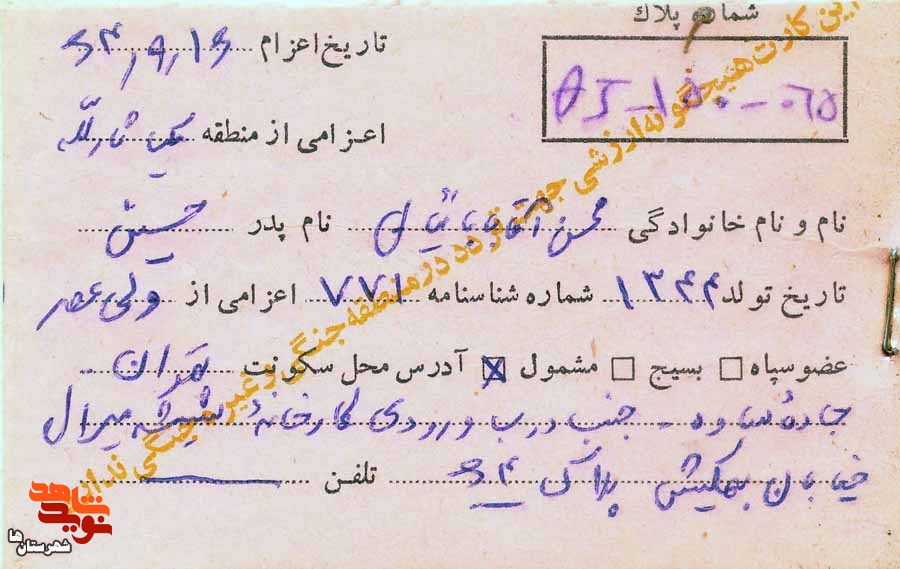 شماره پلاک
۰۶۵-۱۵۰-
تاریخ اعزام ۶۴٫۹٫۱۶
اعزامی از منطقه
نام و نام خانوادگی محسن آقابابائیان نام پدر حسین
تاریخ تولد ۱۳۴۴ شماره شناسنامه ۷۷۱ اعزامی از ولی عصر
عضو سپاه □ بسیج □ مشمول ☒ آدرس محل سکونت تهران
جادهٔ ساوه - جنب درب ورودی کارخانهٔ شیشه میرال
خیابان پلاک ۶۴ تلفن
این کارت هیچگونه ارزشی جهت تردد در منطقه جنگی و غیر جنگی ندارد
نوید شاهد
شهرستان ها